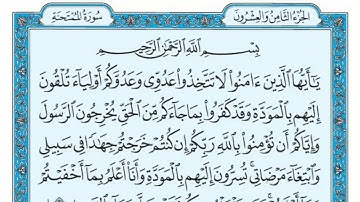 الجزء الثامن والعشرون
سورة الممتحنة
بِسْمِ اللَّهِ الرَّحْمَٰنِ الرَّحِيمِ
يَا أَيُّهَا الَّذِينَ ءَامَنُوا لَا تَتَّخِذُوا عَدُوِّى وَعَدُوَّكُمْ أَوْلِيَآءَ تُلْقُونَ
إِلَيْهِم بِالْمَوَدَّةِ وَقَدْ كَفَرُوا بِمَا جَآءَكُم مِّنَ الْحَقِّ يُخْرِجُونَ الرَّسُولَ
وَإِيَّاكُمْ أَن تُؤْمِنُوا بِاللَّهِ رَبِّكُمْ إِن كُنتُمْ خَرَجْتُمْ جِهَادًا فِى سَبِيلِى
وَابْتِغَآءَ مَرْضَاتِى تُسِرُّونَ إِلَيْهِم بِالْمَوَدَّةِ وَأَنَا أَعْلَمُ بِمَآ أَخْفَيْتُمْ